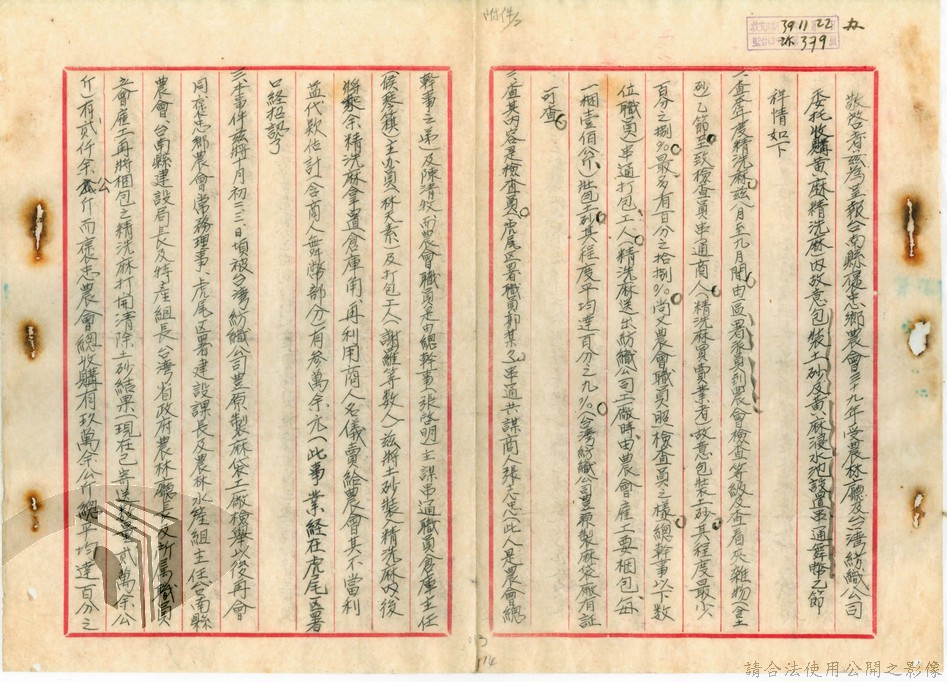 附件
39 11 22
379
敬啓者茲為呈報台南縣褒忠鄉農會三十九年受農林廳及台湾紡織公司
委托收購黃麻精洗麻內故意包裝土砂及黃麻浸水池設置串通舞幣乙節
祥情如下
一、查本年度精洗麻茲八月至九月間由區署派員到農會檢查等級及查看夾雜物(含土
砂)乙節至致檢查員串通商人(精洗麻買賣業者)故意包裝土砂其程度最少
百分之捌%最多有百分之拾捌%尚又農會職員照(檢查員之樣總幹事以下數
位職員)串通打包工人精洗麻送出紡織公司工廠時由農會雇工要梱包(每
一梱壹佰公斤)此包土砂其程度平均達百分之九%(台湾紡織公司豊原製麻袋廠有証
可查)
二、查其內容是檢查員虎尾区署職員郭某串通共謀商人張志忠(此人是農會總
幹事之弟)及陳清波而農會職員是由總幹事張啓明主謀串通職員倉庫主任
(侯琴籙)主办員(林天素)及打包工人(謝羅等数人)茲將土砂裝入精洗麻以後
將剩余精洗麻拿置倉庫角再利用商人名儀賣給農會其不當利
益代欵估計(含商人舞幣部分)有參萬余元(此事業経在虎尾区署
口経招認了
三、本事件茲將十月初三三日頃被台湾紡織公司豊原製麻袋工廠檢舉以後再會
同褒忠鄉農會常務理事、虎尾区署建設課長及農林水産組主任台南縣
農會、台南縣建設局長及特産組長台湾省政府農林廳長及所属職員
立會雇工再將梱包之精洗麻打開清除土砂結果現在已寄送數量貳萬余公
斤)有貳仟余公斤而褒忠農會總收購有玖萬余公斤總平均達百分之
013
14
請合法使用公開之影像